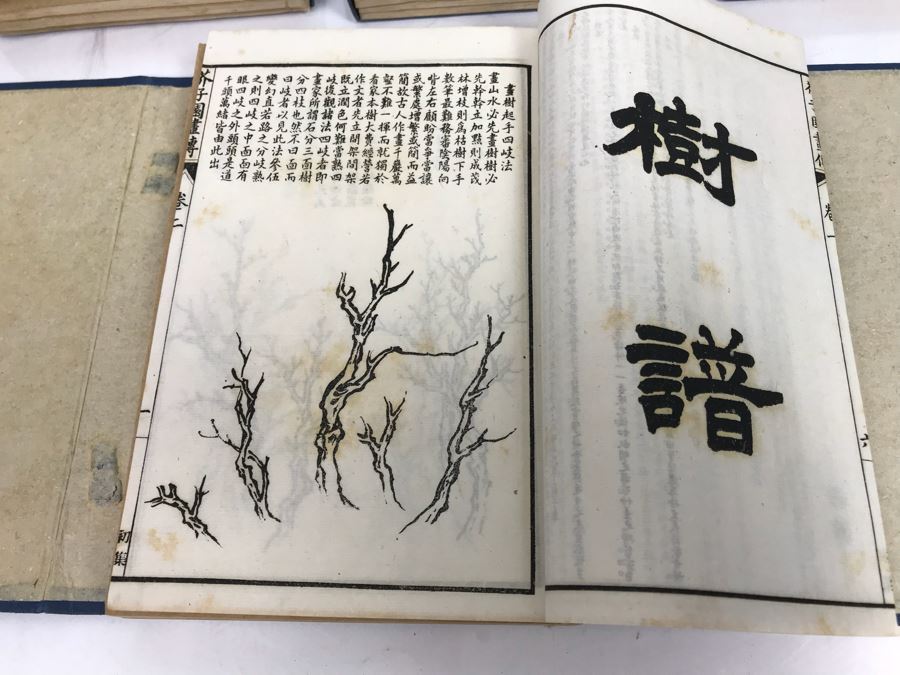 樹譜
畫樹起手四岐法
畫山水必先畫樹樹必
先幹幹立加點則成茂
林增枝則為枯樹下手
數筆最難務審陰陽向
背左右顧盼當爭當讓
或繁處增繁或簡而益
簡故古人作畫千巖萬
壑不難一揮而就獨於
看家本樹大費經營若
作文者先立間架間架
既立潤色何難當熟四
岐後觀諸法四岐者即
畫家所謂石分三面樹
分四枝也然不曰面而
曰岐者以見此法參伍
變幻直若路之分岐熟
之則四岐之中面面有
眼四岐之外頭頭是道
千頭萬緒皆由此出
芥子園畫傳
卷二
一
初集